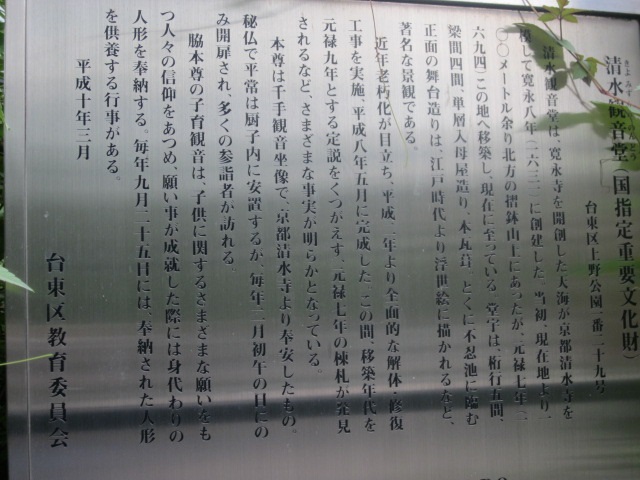 清水観音堂(国指定重要文化財)
台東区上野公園一番二十九号
清水観音堂は、寛永寺を開創した天海が京都清水寺を
模して寛永八年(一六三一)に創建した。当初、現在地より一
〇〇メートル余り北方の摺鉢山上にあったが、元禄七年(一
六九四)この地へ移築し、現在に至っている。堂宇は、桁行五間、
梁間四間、単層入母屋造り、本瓦葺、とくに不忍池に臨む
正面の舞台造りは、江戸時代より浮世絵に描かれるなど、
著名な景観である。
近年老朽化が目立ち、平成二年より全面的な解体・修復
工事を実施、平成八年五月に完成した。この間、移築年代を
元禄九年とする定説をくつがえす、元禄七年の棟札が発見
されるなど、さまざまな事実が明らかとなっている。
本尊は千手観音坐像で、京都清水寺より奉安したもの。
秘仏で平常は厨子内に安置するが、毎年二月初午の日にの
み開扉され、多くの参詣者が訪れる。
脇本尊の子育観音は、子供に関するさまざまな願いをも
つ人々の信仰をあつめ、願い事が成就した際には身代わりの
人形を奉納する。毎年九月二十五日には、奉納された人形
を供養する行事がある。
平成十年三月
台東区教育委員会